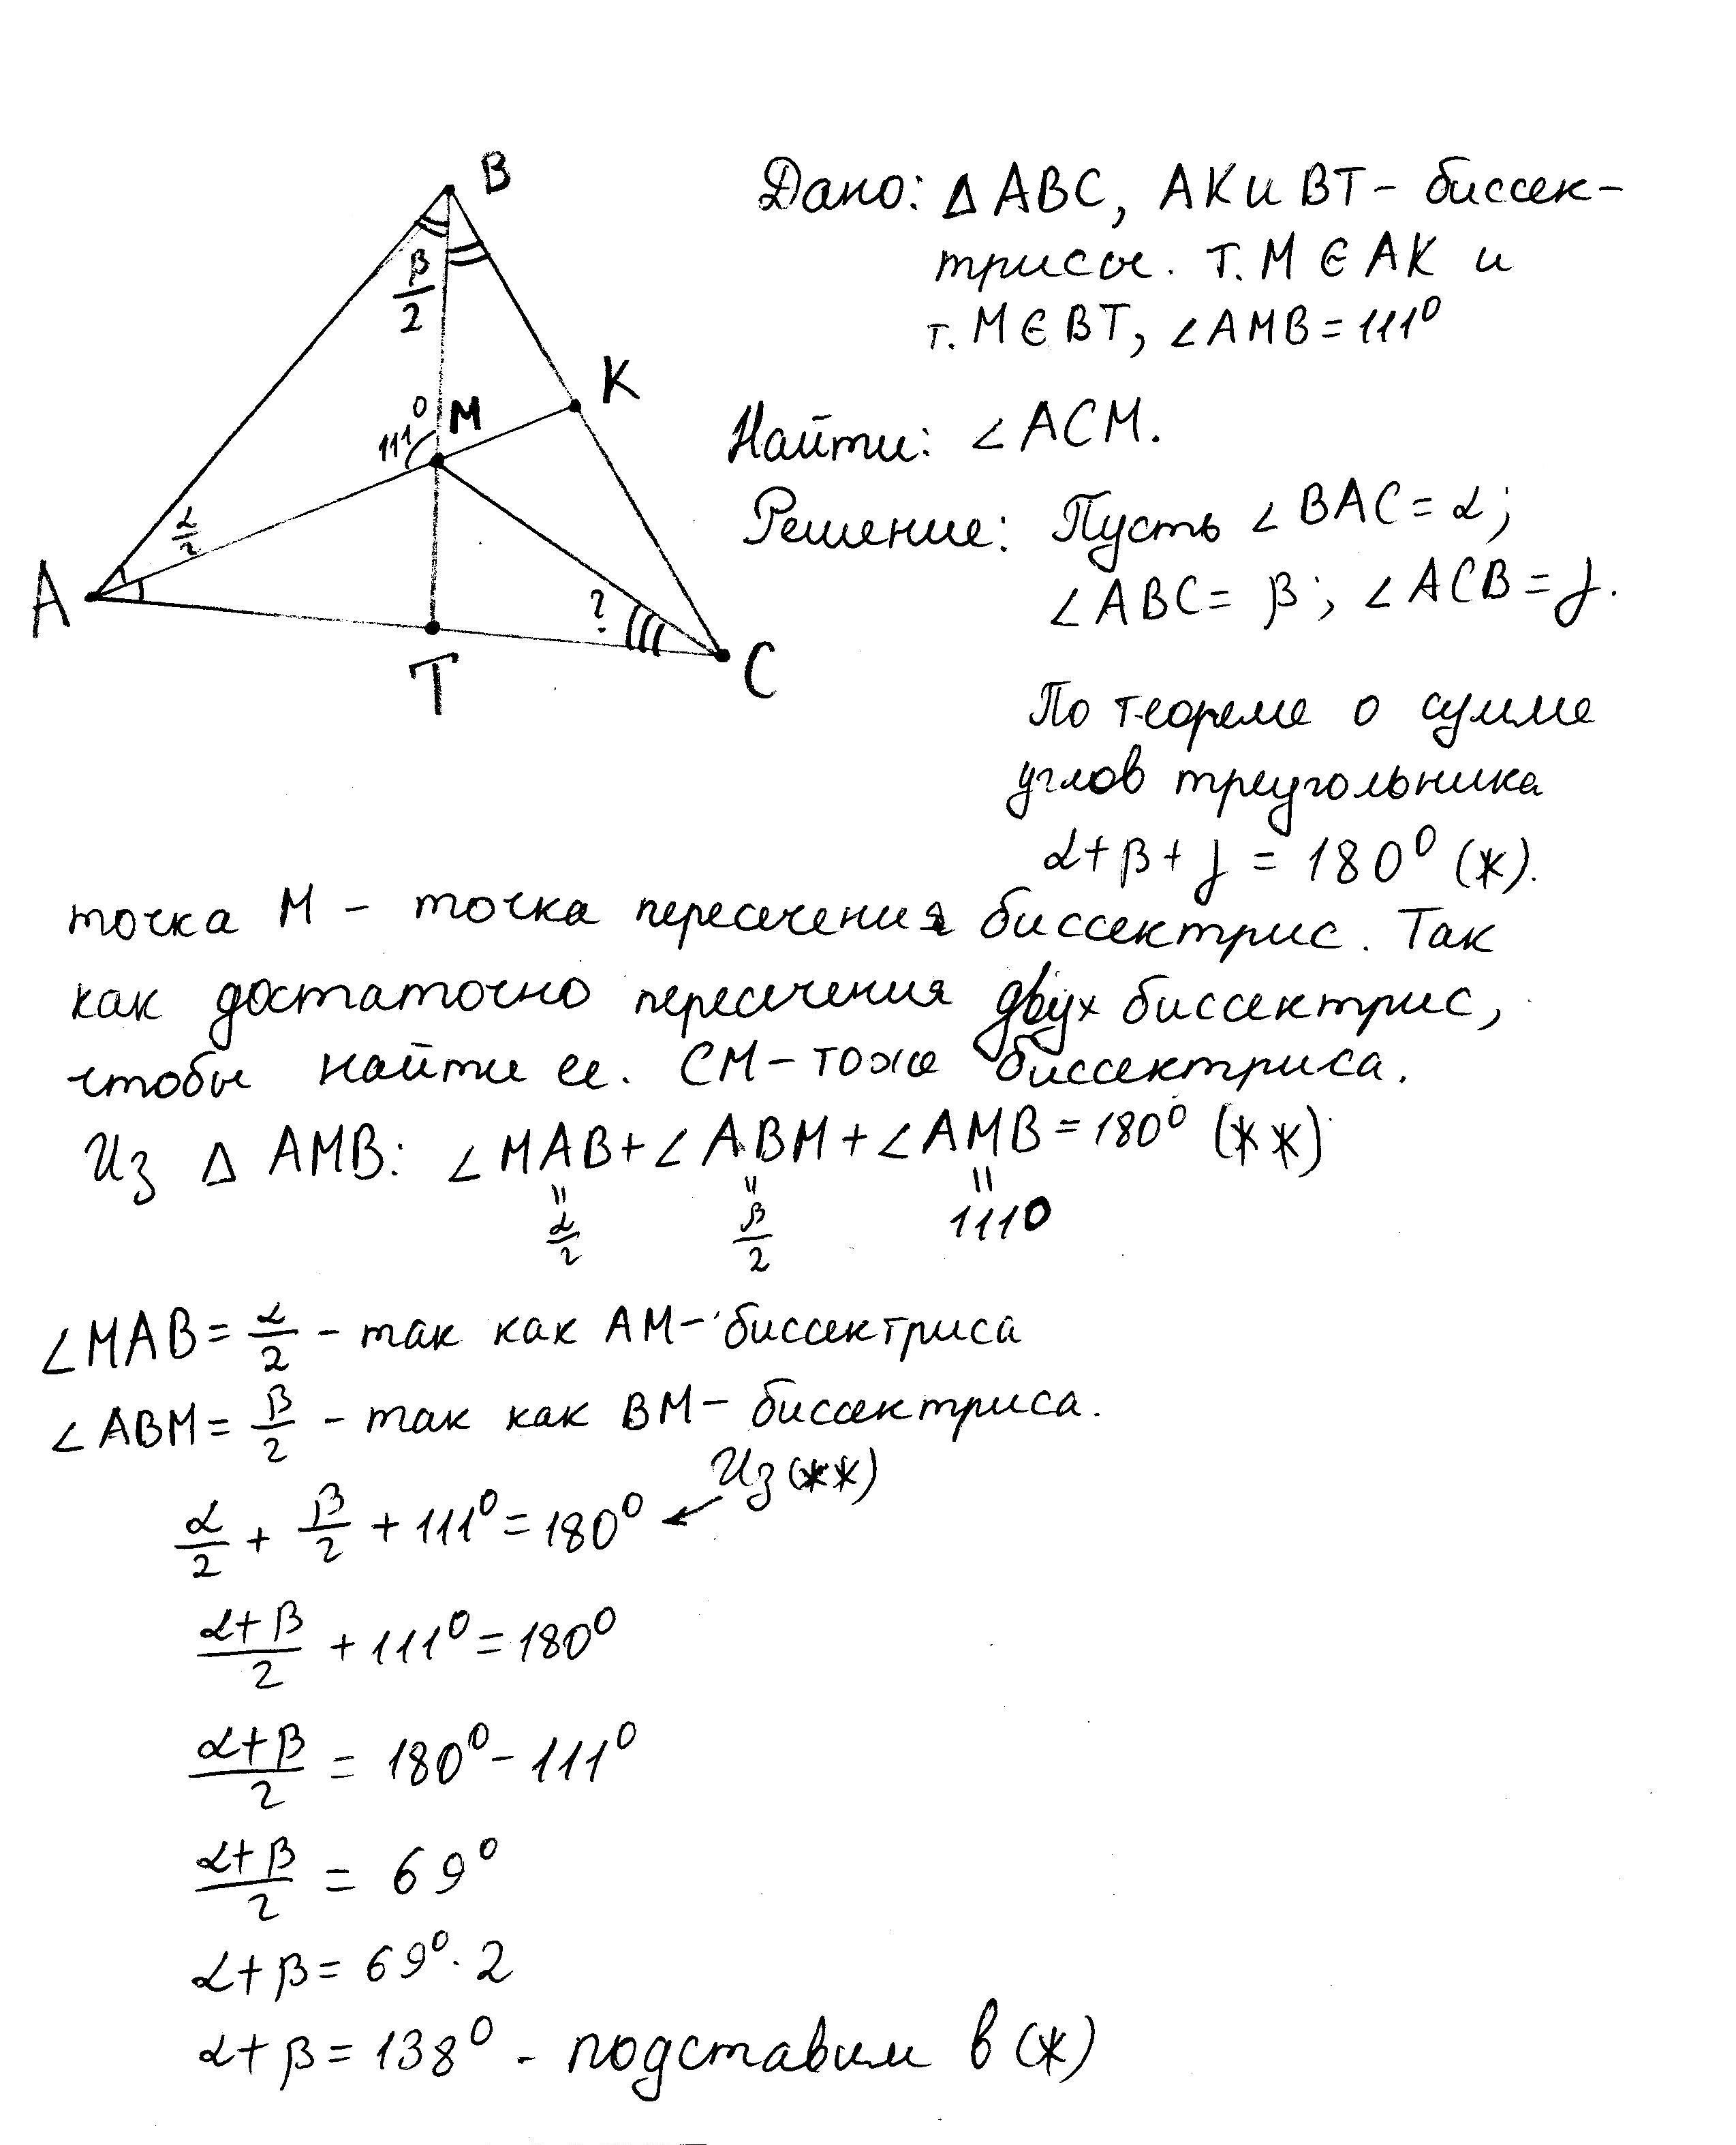 B
β/2
K
111° M
α/2
A
?
T
C
Дано: Δ ABC, AK и BT - биссек-
трисы. т. M ∈ AK и
т. M ∈ BT, ∠AMB = 111°
Найти: ∠ACM.
Решение: Пусть ∠BAC = α;
∠ABC = β; ∠ACB = γ.
По теореме о сумме
углов треугольника
α + β + γ = 180° (*).
точка M - точка пересечения биссектрис. Так
как достаточно пересечения двух биссектрис,
чтобы найти ее. CM - тоже биссектриса.
Из Δ AMB: ∠MAB + ∠ABM + ∠AMB = 180° (**)
= = =
α/2 β/2 111°
∠MAB = α/2 - так как AM - биссектриса
∠ABM = β/2 - так как BM - биссектриса.
Из (**)
α/2 + β/2 + 111° = 180° ←
(α+β)/2 + 111° = 180°
(α+β)/2 = 180° - 111°
(α+β)/2 = 69°
α+β = 69° · 2
α+β = 138° - подставим в (*)